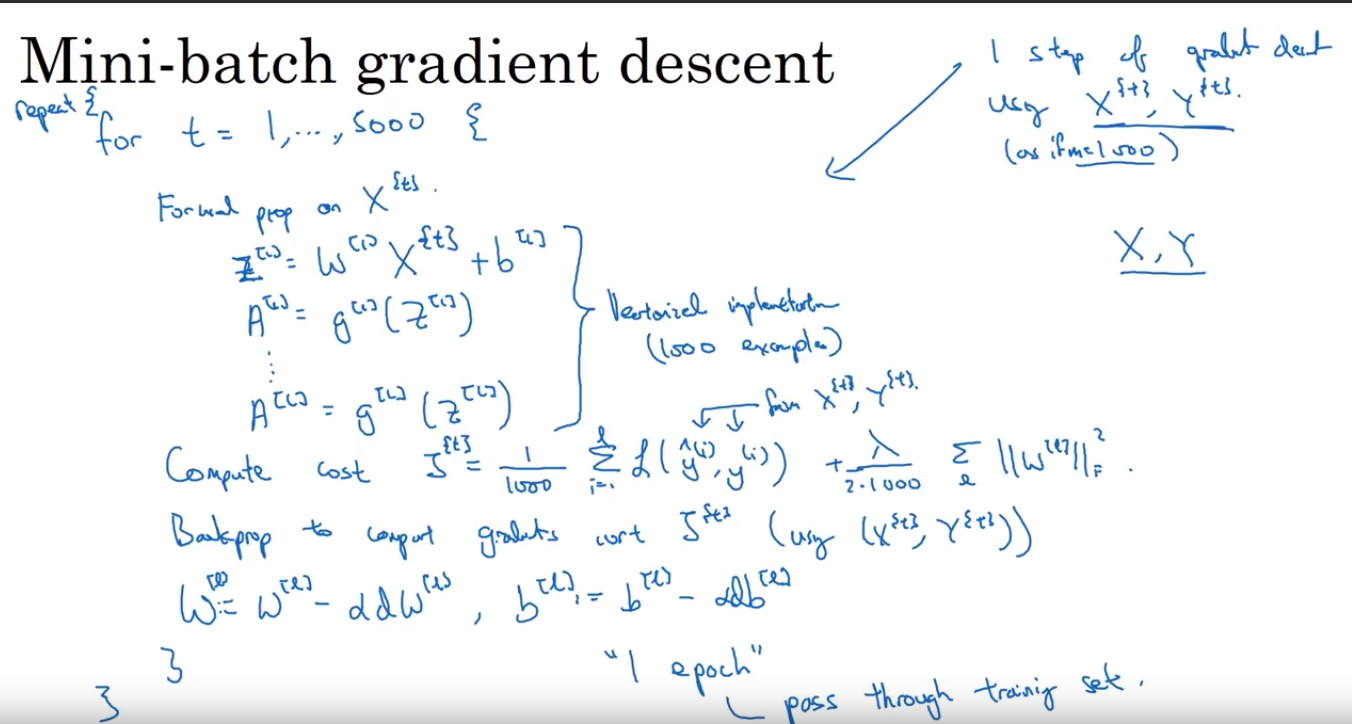 Mini-batch gradient descent
repeat {
for t = 1, ..., 5000 {
1 step of gradient descent
using X^{t}, Y^{t}.
(as if m=1000)
X, Y
Forward prop on X^{t}.
Z^[1] = W^[1] X^{t} + b^[1]
A^[1] = g^[1](Z^[1])
⋮
A^[L] = g^[L](Z^[L])
Vectorized implementation
(1000 examples)
from X^{t}, Y^{t}.
Compute cost J^{t} = 1/1000 Σ_{i=1}^{l} L(ŷ^(i), y^(i)) + λ/(2·1000) Σ_l ||W^[l]||_F^2.
Backprop to compute gradients wrt J^{t} (using (X^{t}, Y^{t}))
W^[l] := W^[l] - αdW^[l], b^[l] := b^[l] - αdb^[l]
}
}
"1 epoch"
pass through training set.